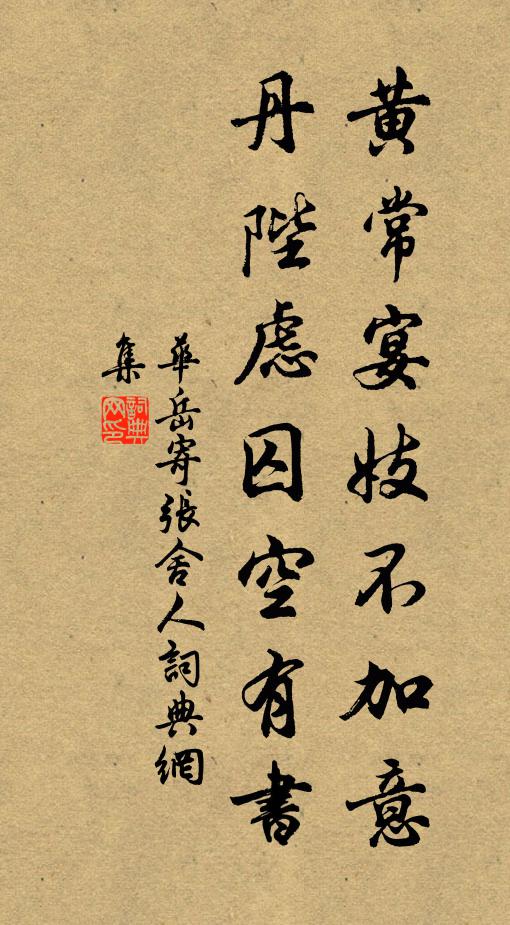 黃常宴妓不加意
丹陛慮囚空有書
華岳寄張舍人詞典網
集
詞典
网印